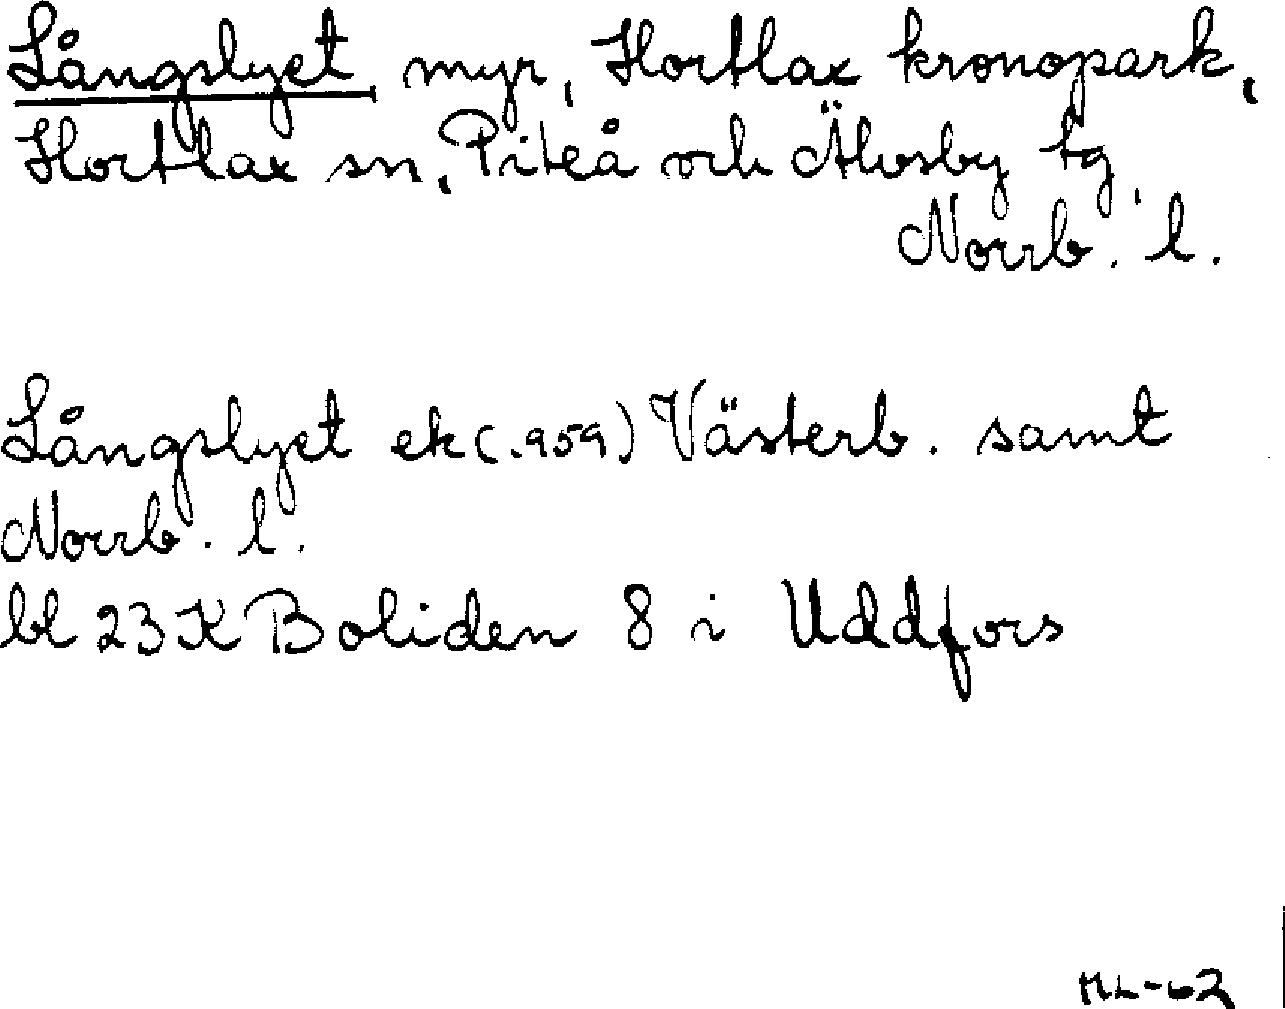 Långslyet, myr, Hortlax kronopark,
Hortlax sn, Piteå och Älvsby tg,
Norrb. l.
Långslyet ek (.959) Västerb. samt
Norrb. l.
bl 23 K Boliden 8 i Uddfors
ML-62